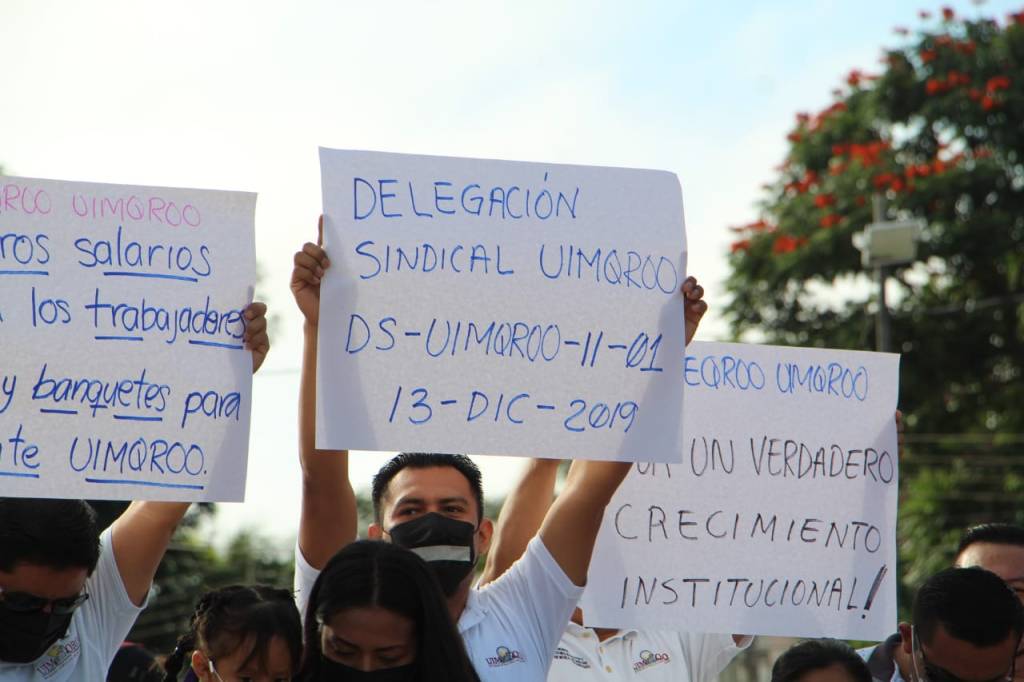 UIMQROO
salarios
los trabajadores
y banquetes para
UIMQROO.
DELEGACIÓN
SINDICAL UIMQROO
DS-UIMQROO-11-01
13-DIC-2019
UIMQROO
UN VERDADERO
CRECIMIENTO
INSTITUCIONAL!